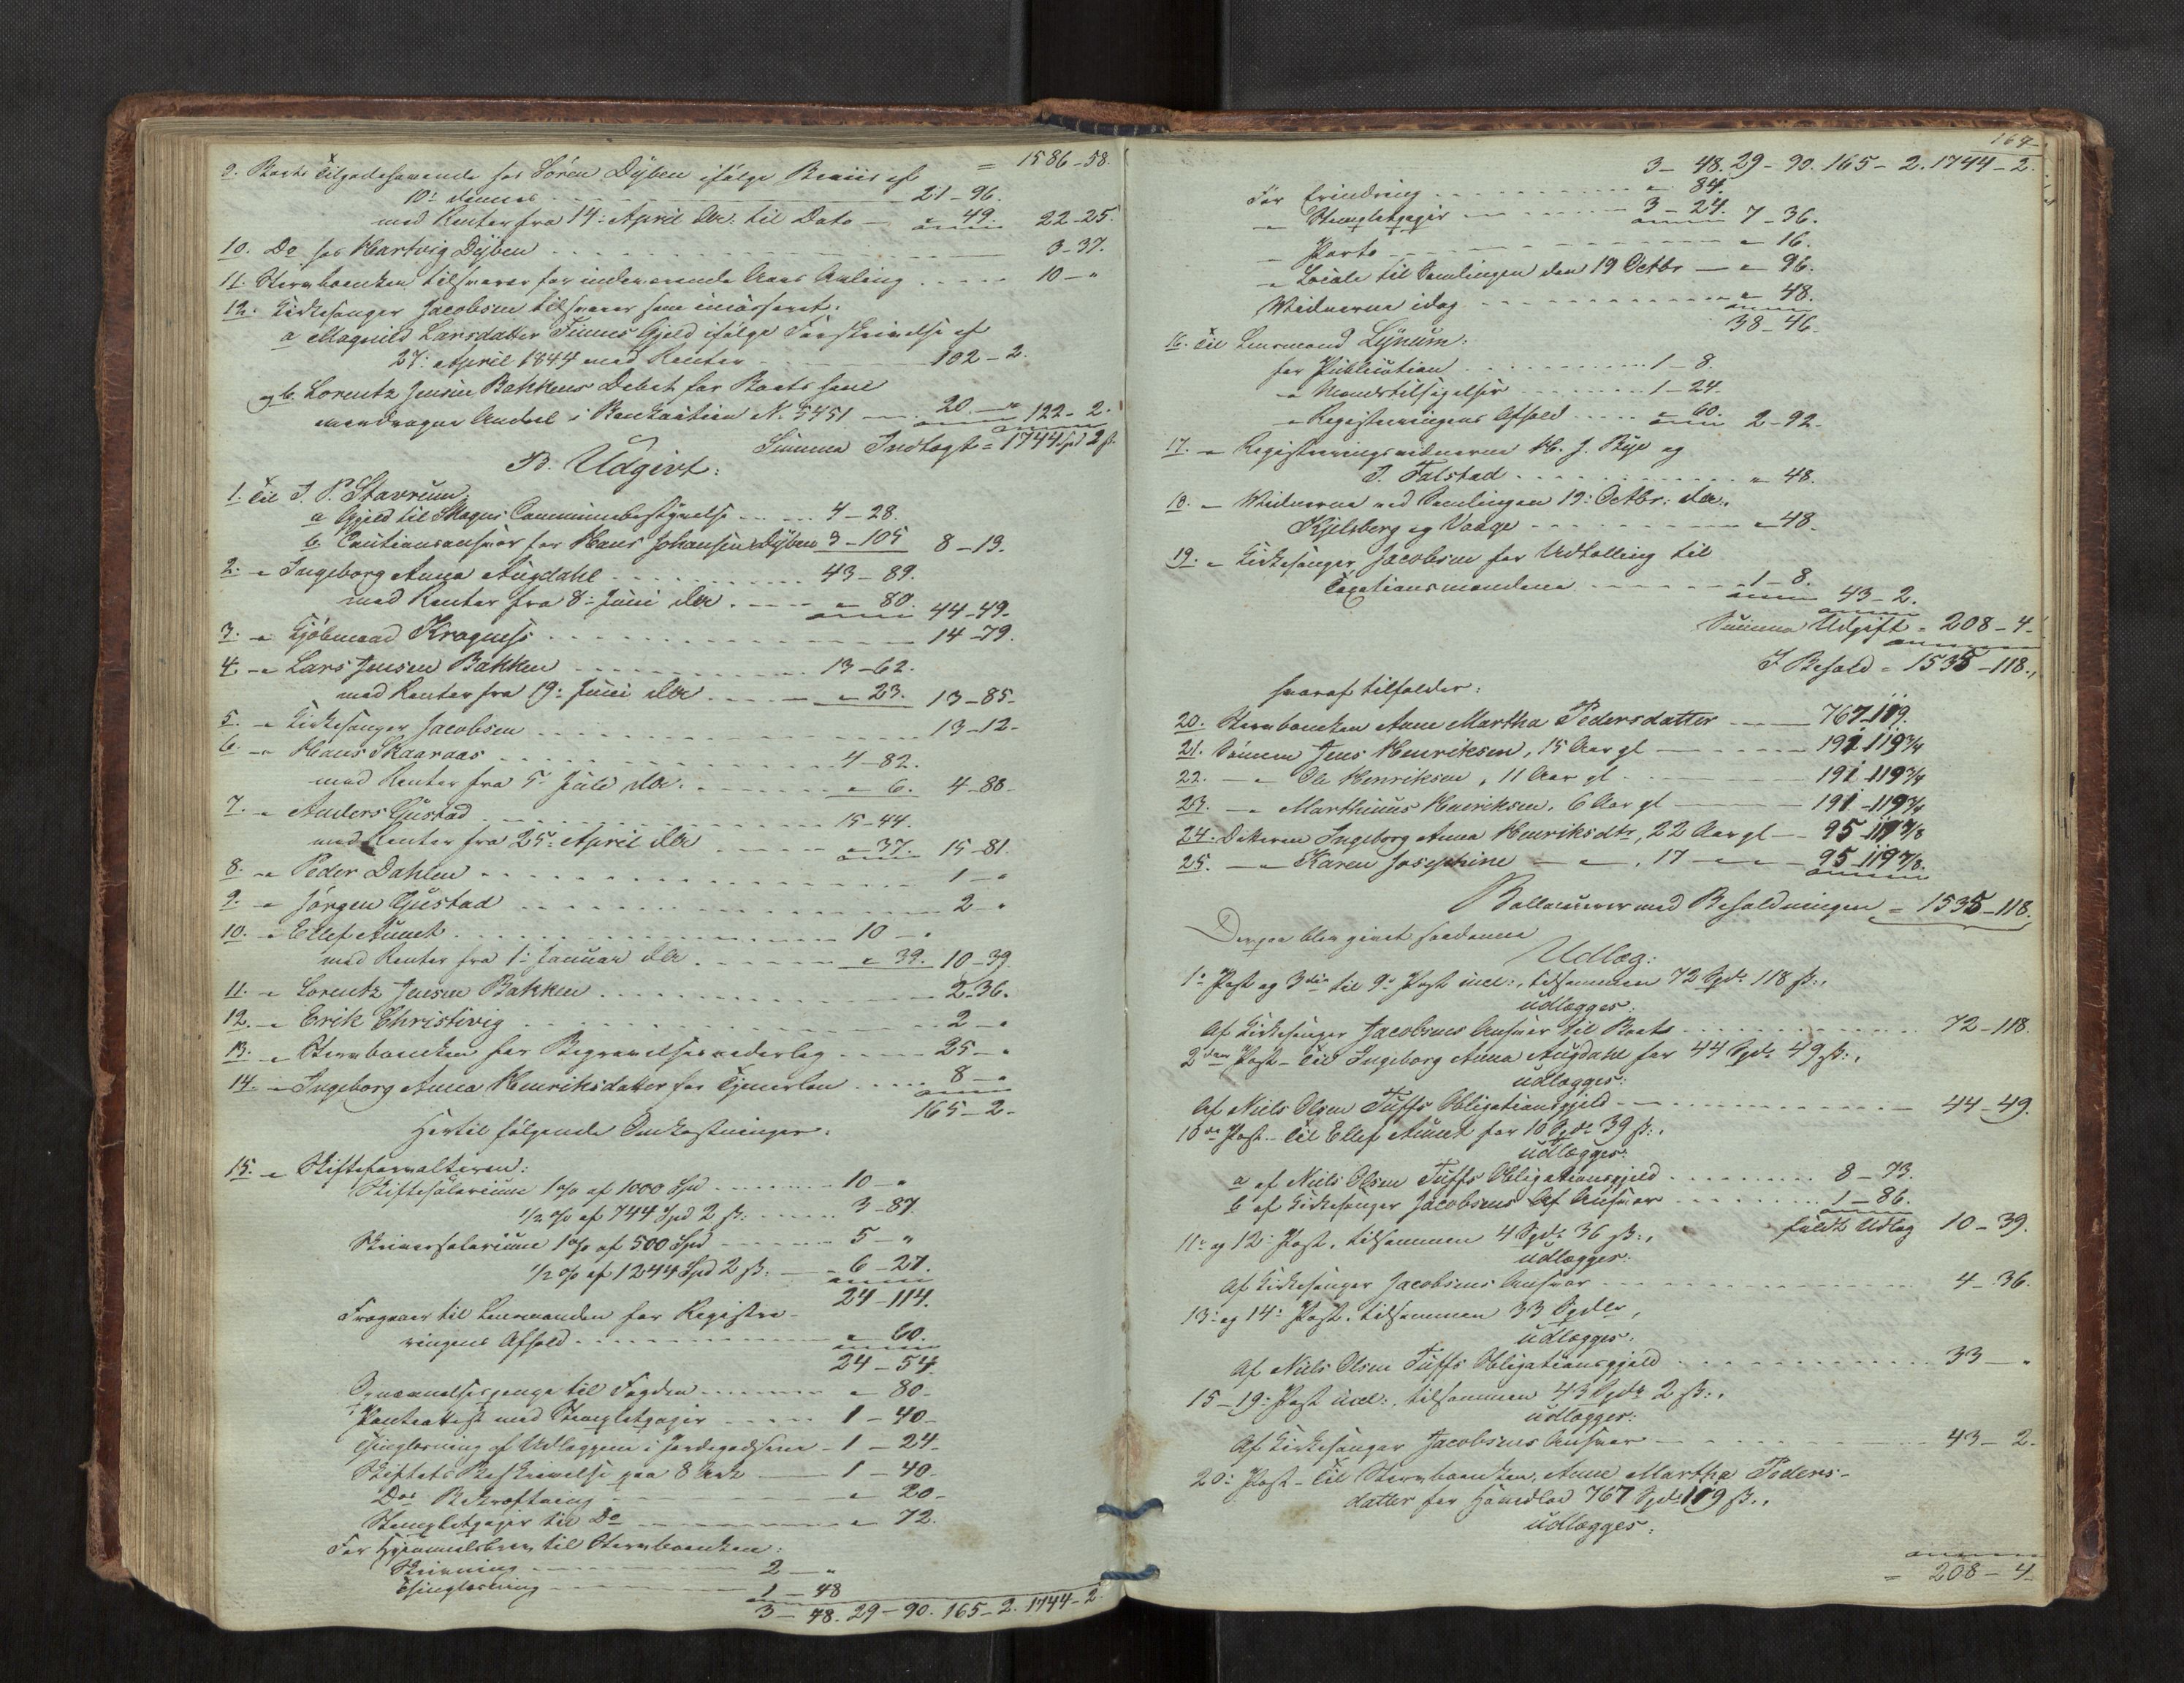 = 1586-58.
9. Boets Tilgodehavende hos Sören Dÿben ifölge Beviis af
10: dennes - 21-96.
med Renter fra 14: April d.A. til Dato - " 49. 22-25.
10. Do hos Hartvig Dÿben 3-37.
11. Stervboenken tilsvarer for indeværende Aars Avling 10-"
12. Kirkesanger Jacobsen tilsvarer som incasseret:
a Magnild Larsdatter Finnes Gjeld ifölge Forskrivelse af
27: April 1844 med Renter 102-2.
og b. Lorentz Jensen Bakkens Debet for Boets ham
overdragne Andeel i Bankactien N. 5451 - 20.-" 122-2.
Summa Indtægt = 1744 Spd 2 ß.
B. Udgivt:
1. Til J. P. Stavrum:
a Gjeld til Skogns Communebestyrelse 4-28.
b. Cautionsansvar for Hans Johansen Dÿben 3-105 8-13.
2. " Ingeborg Anna Augdahl 43-89.
med Renter fra 8: Juni d.A. " 80. 44-49.
3. " Kjöbmand Kragness 14-79.
4. " Lars Jensen Bakken 13-62.
med Renter fra 19: Juni d.A. " 23. 13-85.
5. " Kirkesanger Jacobsen 13-12-
6. " Hans Skaaraas 4-82.
med Renter fra 5: Juli d.A. " 6. 4-88-
7. " Anders Gustad 15-44.
med Renter fra 25: April d.A. " 37. 15-81.
8. " Peder Dahlen 1-"
9. " Jörgen Gustad 2-"
10. " Ellef Aunet 10-"
med Renter fra 1: Januar d.A. " 39. 10-39.
11. " Lorentz Jensen Bakken 2-36.
12. " Erik Christivig 2-"
13. " Stervboenken for Begravelsesvederlag 25-"
14. " Ingeborg Anna Henriksdatter for Tjenerlön 8-"
165-2-
Hertil fölgende Omkostninger:
15. " Skifteforvalteren:
Skiftesalarium 1 % af 1000 Spd 10-"
1/2 % af 744 Spd 2 ß. 3-87.
Skriversalarium 1 % af 500 Spd 5-"
1/2 % af 1244 Spd 2 ß. 6-27.
24-114.
Fragaaer til Lensmanden for Registre-
ringens Afhold " 60.
24-54.
Opnævnelsespenge til Fogden " 80-
Panteattest med Stempletpapir 1-40-
Thinglæsning af Udlæggene i Jordegodserne - 1-24-
Skiftets Beskrivelse paa 8 Ark 1-40-
Dos Bekræftning " 20-
Stempletpapir til Do " 72.
For Hjemmelsbrev til Stervboenken:
Skrivning 2-"
Thinglæsning 1-48
3-48. 29-90. 165-2. 1744-2.
167-
3-48. 29-90. 165-2. 1744-2.
For Erindring " 84.
" Stempletpapir 3-24. 7-36.
" Porto " 16.
" Locale til Samlingen den 19 Octbr " 96.
Vidnerne idag " 48.
38-46.
16. Til Lensmand Lÿnum:
for Publication 1-8.
" Mandstilsigelser 1-24.
" Registreringens Afhold " 60. 2-92.
17. " Registreringsvidnerne H. J. Bÿe og
J. Falstad " 48.
18. " Vidnerne ved Samlingen 19: Octbr: d.A.,
Kjelsberg og Vaage " 48.
19. " Kirkesanger Jacobsen for Udtælling til
Taxationsmændene 1-8. 43-2.
Summa Udgift = 208-4-
I Behold = 1535-118.,
hvoraf tilfalder:
20. Stervboenken Anne Martha Pedersdatter 767-119.
21. Sönnen Jens Henriksen, 15 Aar gl 191-119 3/4
22. " Ole Henriksen, 11 Aar gl 191-119 3/4
23. " Marthinus Henriksen, 6 Aar gl 191-119 3/4
24. Datteren Ingeborg Anna Henriksdtr, 22 Aar gl 95-119 7/8
25. " Karen Josephine " ", 17 " " 95-119 7/8.
Ballancerer med Beholdningen = 1535-118.
Derpaa blev givet saadanne
Udlæg:
1: Post og 3die til 9: Post incl:, tilsammen 72 Spd. 118 ß.,
udlægges:
Af Kirkesanger Jacobsens Ansvar til Boets 72-118.
2den Post - Til Ingeborg Anna Augdahl for 44 Spd. 49 ß.,
udlægges:
Af Niels Olsen Tuffs Obligationsgjeld 44-49.
10de Post - Til Ellef Aunet for 10 Spd. 39 ß.,
udlægges:
a af Niels Olsen Tuffs Obligationsgjeld 8-73.
b af Kirkesanger Jacobsens Ansvar 1-86.
fuldt Udlæg 10-39.
11: og 12: Post, tilsammen 4 Spd. 36 ß.,
udlægges:
Af Kirkesanger Jacobsens Ansvar 4-36.
13: og 14: Post, tilsammen 33 Spdlr,
udlægges:
Af Niels Olsen Tuffs Obligationsgjeld 33-"
15-19: Post incl:, tilsammen 43 Spd. 2 ß.,
udlægges:
Af Kirkesanger Jacobsens Ansvar 43-2.
20: Post - Til Stervboenken Anne Martha Peders-
datter for Hovedlod 767 Spd. 119 ß.,
udlægges:
= 208-4